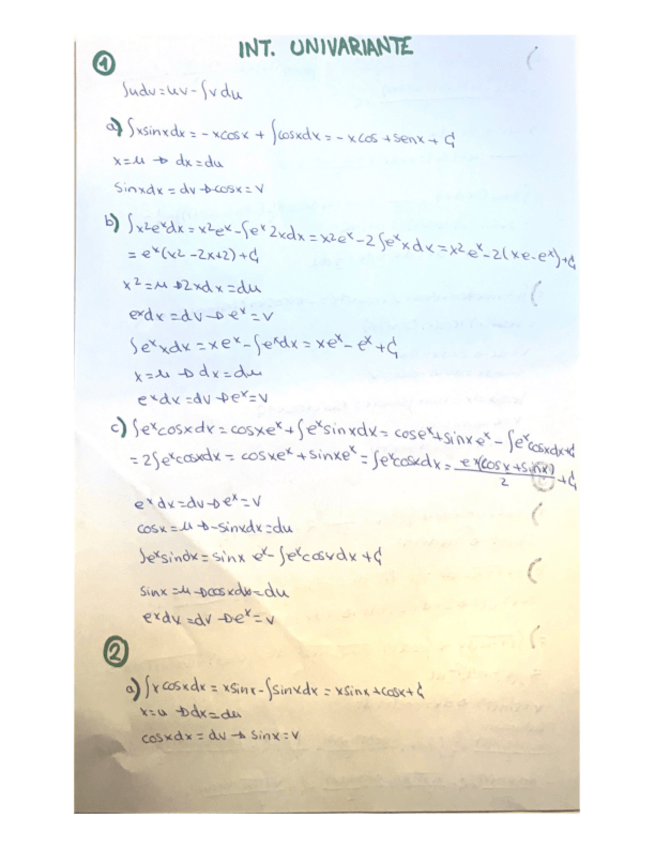 INT. UNIVARIANTE
①
∫udv=uv-∫vdu
a) ∫xsinxdx = -xcosx + ∫cosxdx = -xcos +senx + C
x=u → dx=du
Sinxdx = dv → cosx = v
b) ∫x²eˣdx = x²eˣ-∫eˣ2xdx = x²eˣ-2∫eˣxdx = x²eˣ-2(xe-eˣ)+C
= eˣ(x²-2x+2)+C
x²=u → 2xdx=du
eˣdx = dv → eˣ=v
∫eˣxdx = xeˣ-∫eˣdx = xeˣ-eˣ+C
x=u → dx=du
eˣdx = dv → eˣ=v
c) ∫eˣcosxdx = cosxeˣ+∫eˣsinxdx = coseˣ+sinxeˣ-∫eˣcosxdx+C
= 2∫eˣcosxdx = cosxeˣ+sinxeˣ = ∫eˣcosxdx = eˣ(cosx+sinx)/2 + C
eˣdx = dv → eˣ=v
cosx=u → -sinxdx=du
∫eˣsindx = sinx eˣ-∫eˣcosxdx + C
sinx=u → cosxdx=du
eˣdx = dv → eˣ=v
②
a) ∫xcosxdx = xsinx-∫sinxdx = xsinx+cosx+C
x=u → dx=du
cosxdx = dv → sinx=v